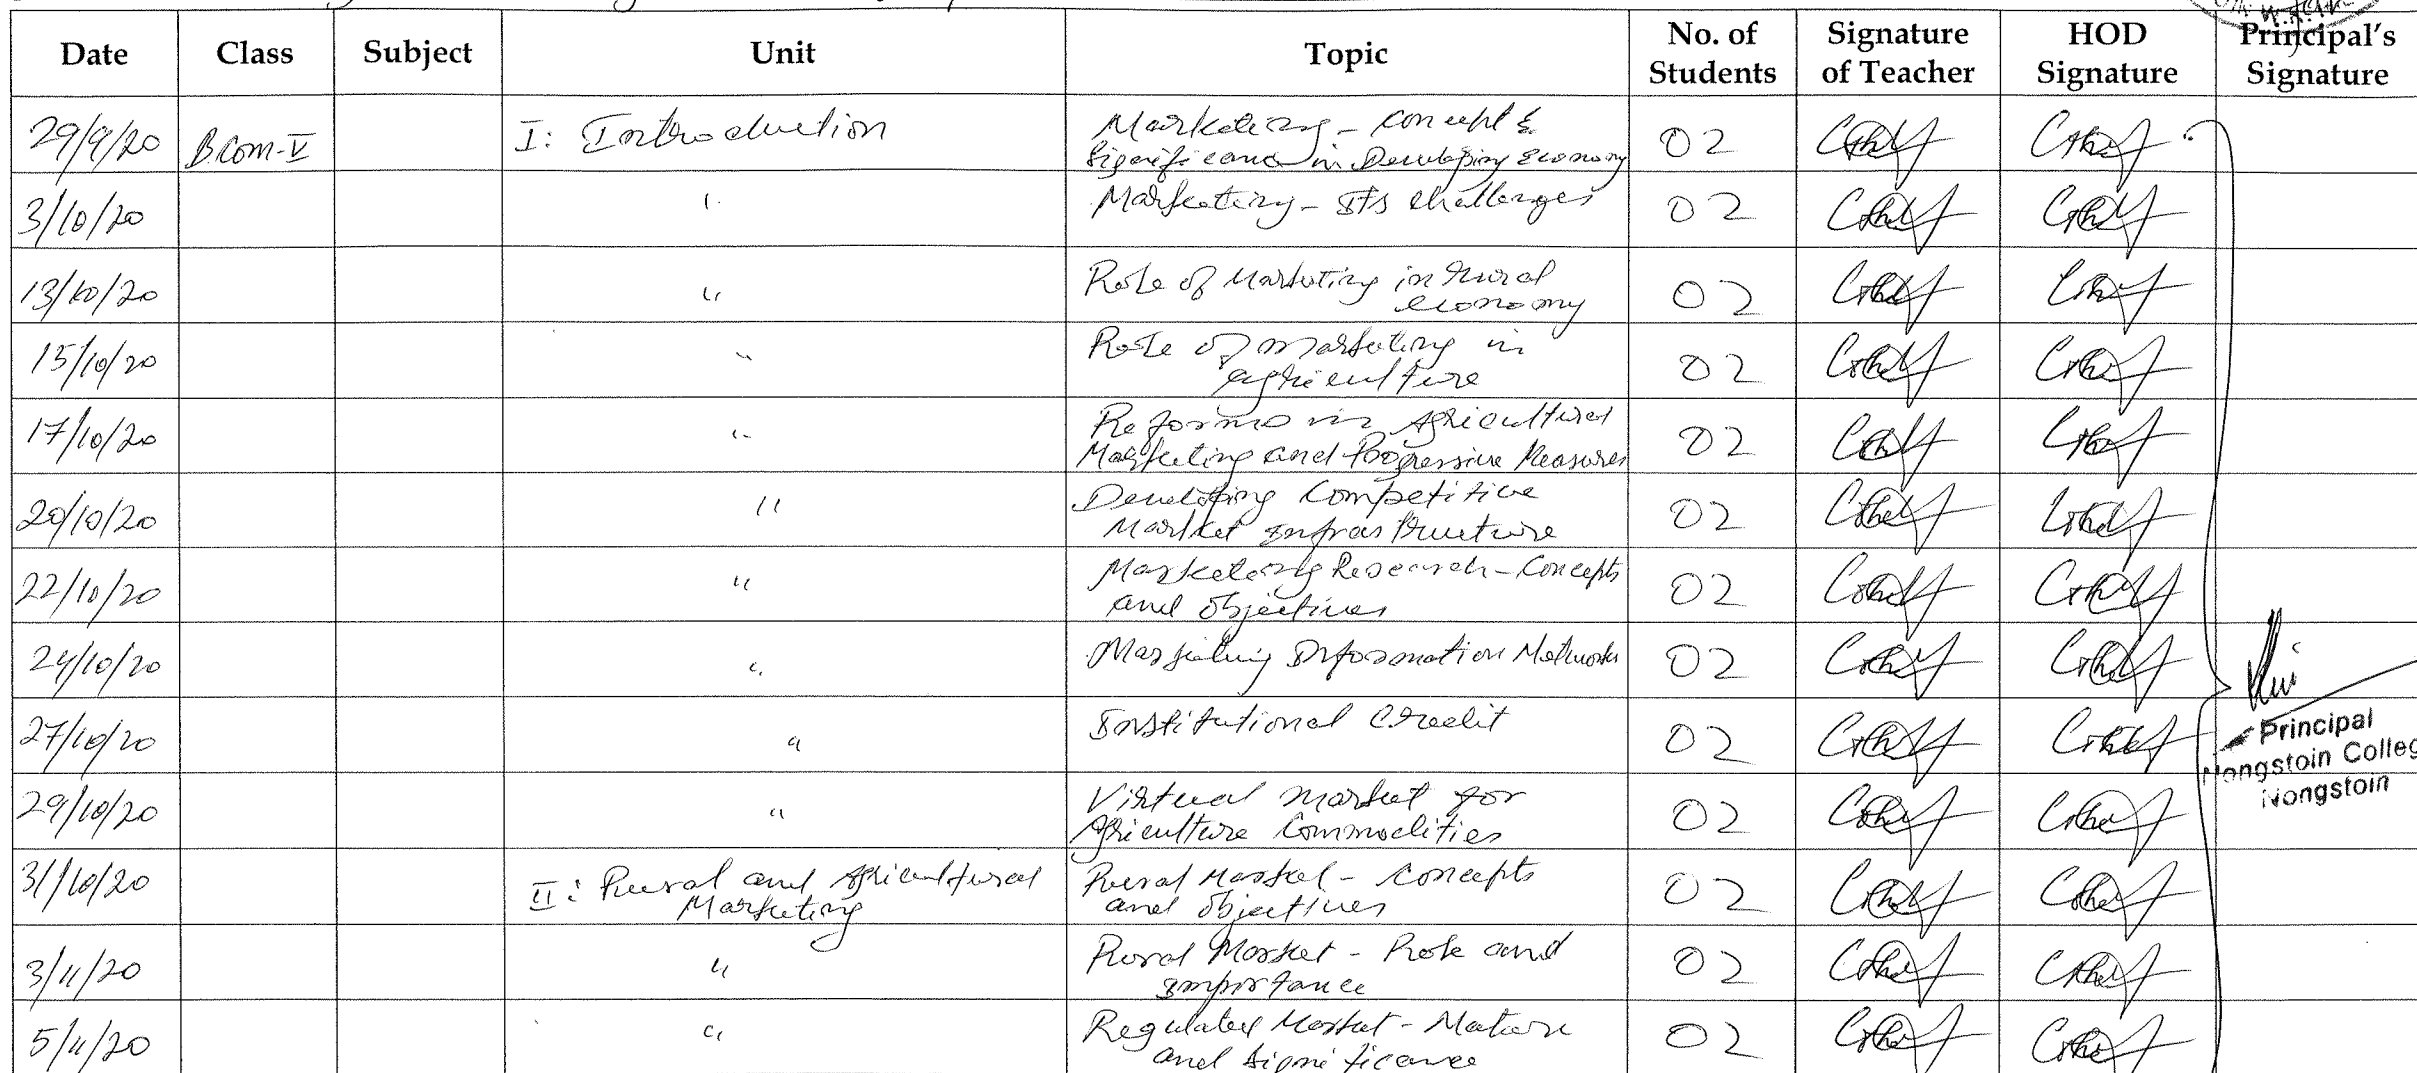 Date Class Subject Unit Topic No. of Students Signature of Teacher HOD Signature Principal's Signature
29/9/20 Bcom-V I: Introduction Marketing - concept & 02
Significance in Developing Economy
3/10/20 " Marketing - Its challenges 02
13/10/20 " Role of Marketing in rural 02
economy
15/10/20 " Role of marketing in 02
agriculture
17/10/20 " Reforms in Agricultural 02
Marketing and Progressive Measures
20/10/20 " Developing Competitive 02
Market Infrastructure
22/10/20 " Marketing Research - Concepts 02
and objectives
24/10/20 " Marketing Information Networks 02
27/10/20 " Institutional Credit 02
Principal
Nongstoin Colleg
Nongstoin
29/10/20 " Virtual market for 02
Agriculture Commodities
31/10/20 II: Rural and Agricultural Rural Market - Concepts 02
Marketing and objectives
3/11/20 " Rural Market - Role and 02
importance
5/11/20 " Regulated Market - Nature 02
and significance